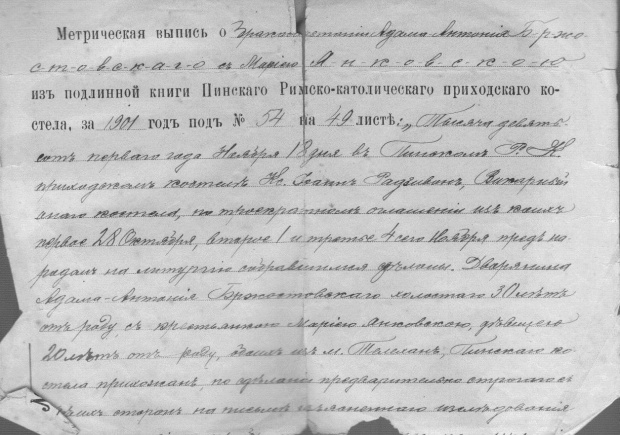 Метрическая выпись о Бракосочетании Адама-Антонія Бржо-
с-т-о-в-с-к-а-г-о съ Маріею Я-н-к-о-в-с-к-о-ю
изъ подлинной книги Пинскаго Римско-католическаго приходскаго ко-
стела, за 1901 годъ подъ № 54 на 49 листѣ: „Тысяча девять-
сотъ перваго года Ноября 18 дня въ Пинскомъ Р. К.
приходскомъ костелѣ Кс. Іоаннъ Радзивонъ, Викарный
онаго костела, по троекратномъ оглашеніи изъ коихъ
первое 28 Октября, второе 1 и третье 4 сего Ноября предъ на-
родомъ на литургію собравшимся сдѣланы. Дворянина
Адама-Антонія Бржостовскаго холостаго 30 лѣтъ
отъ роду, съ крестьянкою Маріею Янковскою, дѣвицею
20 лѣтъ отъ роду, обоихъ изъ м. Телеханъ, Пинскаго ко-
стела прихожанъ, по сдѣланіи предварительно строгаго съ
сторонъ на письмѣ изъясненнаго изслѣдованія